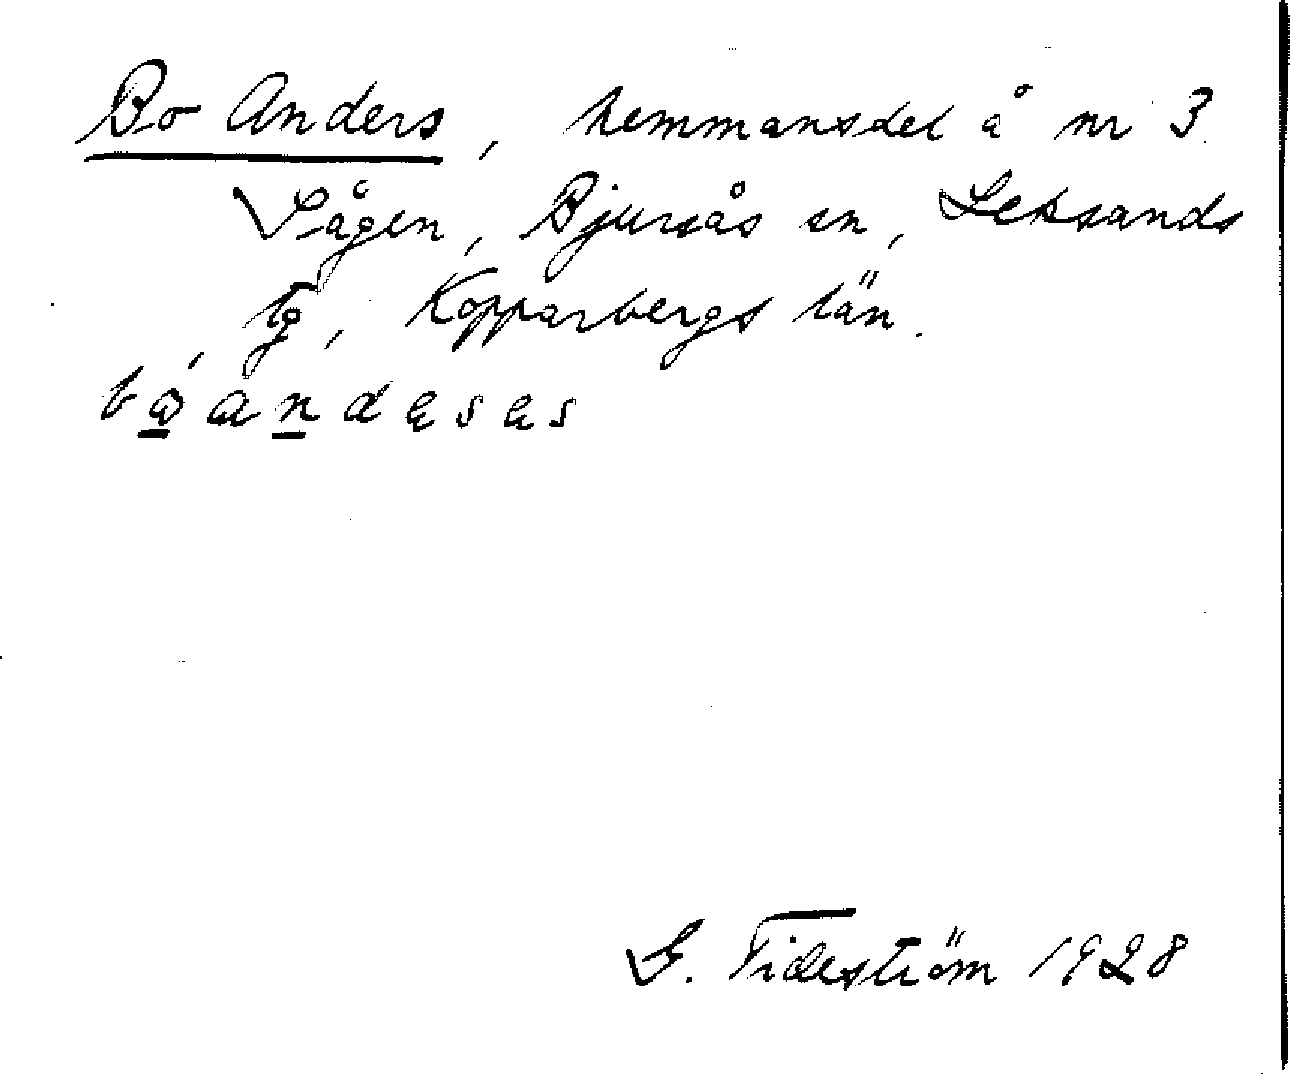 Bo Anders, hemmansdel å nr 3
Sågen, Bjursås sn, Leksands
tg, Kopparbergs län.
G. Tideström 1928